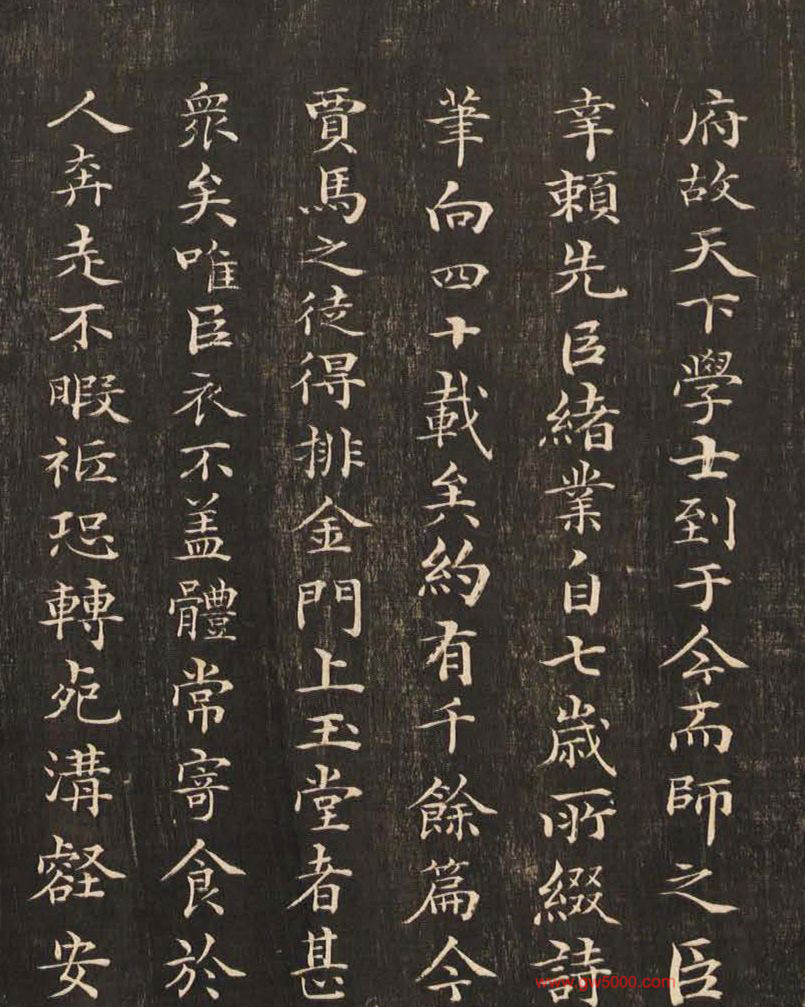 府故天下學士到于今而師之臣
幸賴先臣緒業自七歲所綴詩
筆向四十載矣約有千餘篇今
賈馬之徒得排金門上玉堂者甚
衆矣唯臣衣不盖體常寄食於
人奔走不暇祗恐轉死溝壑安
www.gw5000.com